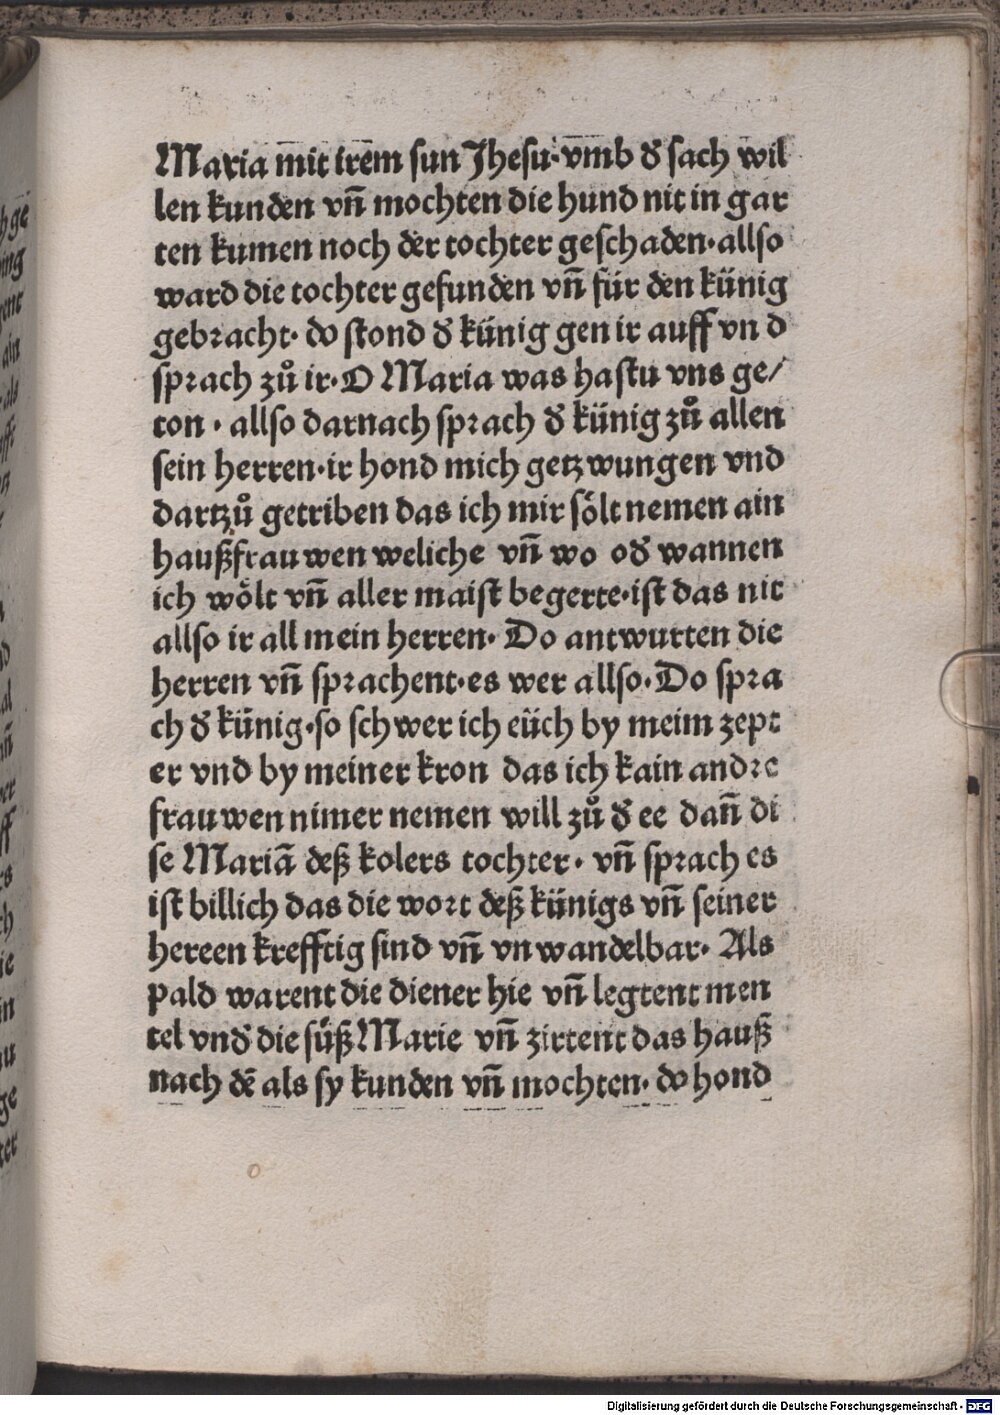 Maria mit irem sun Jhesu·vmb d̕ sach wil
len kunden vn̄ mochten die hund nit in gar
ten kumen noch der tochter geschaden·allso
ward die tochter gefunden vn̄ für den künig
gebracht· do stond d̕ künig gen ir auff vn d
sprach zů ir·O Maria was hastu vns ge/
ton · allso darnach sprach d̕ künig zů allen
sein herren·ir hond mich getzwungen vnd
dartzů getriben das ich mir sölt nemen ain
haußfrauwen weliche vn̄ wo od̕ wannen
ich wölt vn̄ aller maist begerte·ist das nit
allso ir all mein herren· Do antwurten die
herren vn̄ sprachent·es wer allso·Do spra
ch d̕ künig·so schwer ich eüch by meim zept
er vnd by meiner kron das ich kain andre
frauwen nimer nemen will zů d̕ ee dan̄ di
se Mariā deß kolers tochter· vn̄ sprach es
ist billich das die wort deß künigs vn̄ seiner
hereen krefftig sind vn̄ vnwandelbar· Als
pald warent die diener hie vn̄ legtent men
tel vnd̕ die süß Marie vn̄ zirtent das hauß
nach dē als sy kunden vn̄ mochten· do hond
Digitalisierung gefördert durch die Deutsche Forschungsgemeinschaft · DFG